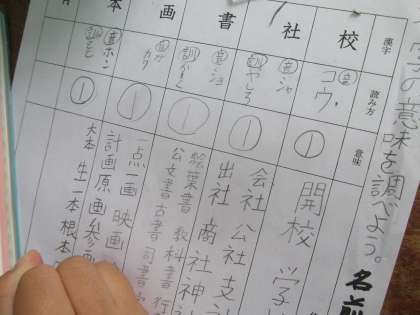 字の意味を調べよう。
名前
漢字
読み方
意味
校
音 コウ
①
開校 学
社
音 シャ
訓 やしろ
①
会社 公社 支
出社 商社 神
書
音 ショ
訓 かく
①
絵葉書 教科書 行
公文書 古書 司書
画
音 ガ カク
①
一点一画 映画
計画 原画 参画
本
音 ホン
訓 もと
①
大本 生一本 根本